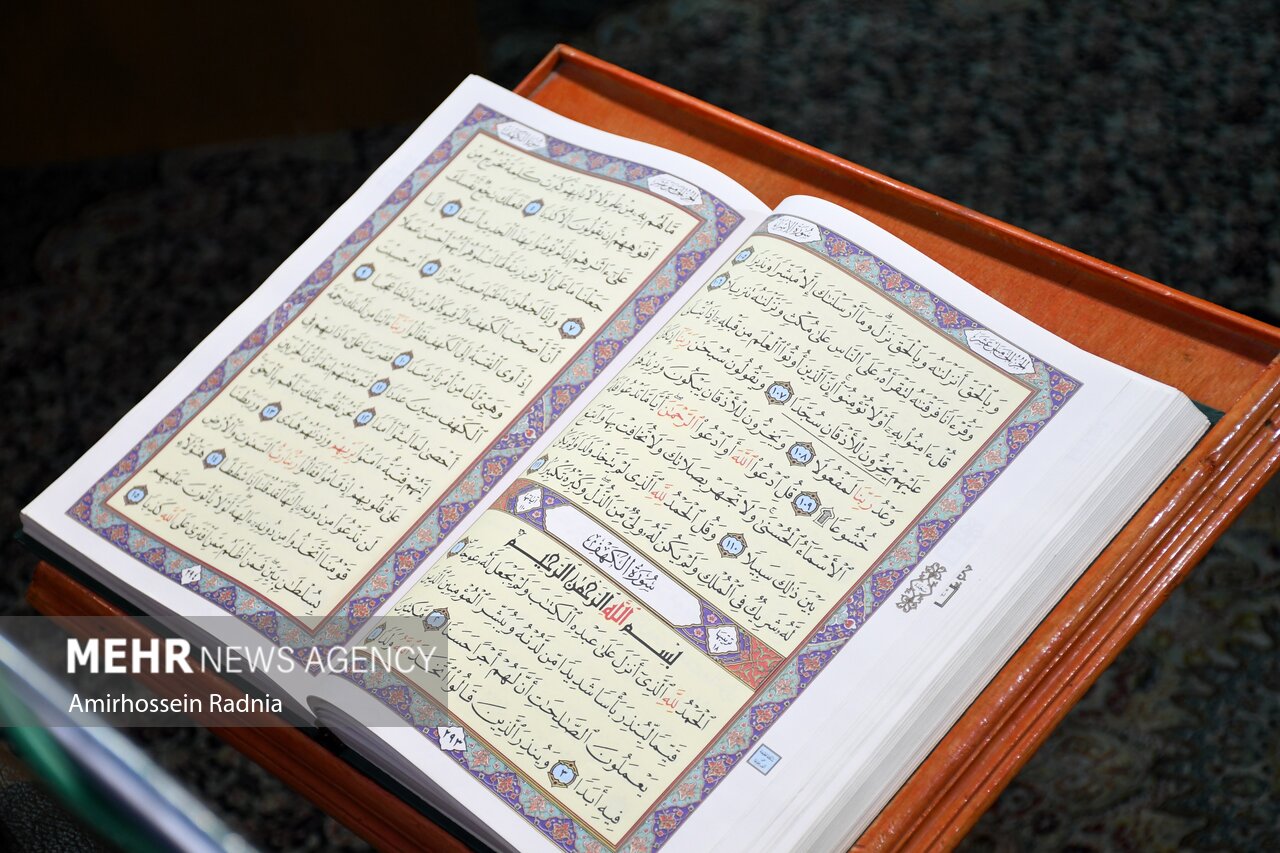 سُورَةُ الإِسْرَاءِ
الجزء الخامس عشر
وَبِالْحَقِّ أَنْزَلْنَاهُ وَبِالْحَقِّ نَزَلَ وَمَا أَرْسَلْنَاكَ إِلَّا مُبَشِّرًا وَنَذِيرًا
وَقُرْءَانًا فَرَقْنَاهُ لِتَقْرَأَهُ عَلَى النَّاسِ عَلَى مُكْثٍ وَنَزَّلْنَاهُ تَنْزِيلًا
قُلْ ءَامِنُوا بِهِ أَوْ لَا تُؤْمِنُوا إِنَّ الَّذِينَ أُوتُوا الْعِلْمَ مِنْ قَبْلِهِ إِذَا يُتْلَى
عَلَيْهِمْ يَخِرُّونَ لِلْأَذْقَانِ سُجَّدًا ١٠٧ وَيَقُولُونَ سُبْحَانَ رَبِّنَا إِنْ كَانَ
وَعْدُ رَبِّنَا لَمَفْعُولًا ١٠٨ وَيَخِرُّونَ لِلْأَذْقَانِ يَبْكُونَ وَيَزِيدُهُمْ
خُشُوعًا ١٠٩ قُلِ ادْعُوا اللَّهَ أَوِ ادْعُوا الرَّحْمَنَ أَيًّا مَا تَدْعُوا فَلَهُ
الْأَسْمَاءُ الْحُسْنَى وَلَا تَجْهَرْ بِصَلَاتِكَ وَلَا تُخَافِتْ بِهَا وَابْتَغِ
بَيْنَ ذَلِكَ سَبِيلًا ١١٠ وَقُلِ الْحَمْدُ لِلَّهِ الَّذِي لَمْ يَتَّخِذْ وَلَدًا وَلَمْ يَكُنْ
لَهُ شَرِيكٌ فِي الْمُلْكِ وَلَمْ يَكُنْ لَهُ وَلِيٌّ مِنَ الذُّلِّ وَكَبِّرْهُ تَكْبِيرًا
سُورَةُ الْكَهْفِ
بِسْمِ اللَّهِ الرَّحْمَنِ الرَّحِيمِ
الْحَمْدُ لِلَّهِ الَّذِي أَنْزَلَ عَلَى عَبْدِهِ الْكِتَابَ وَلَمْ يَجْعَلْ لَهُ عِوَجًا
قَيِّمًا لِيُنْذِرَ بَأْسًا شَدِيدًا مِنْ لَدُنْهُ وَيُبَشِّرَ الْمُؤْمِنِينَ الَّذِينَ
يَعْمَلُونَ الصَّالِحَاتِ أَنَّ لَهُمْ أَجْرًا حَسَنًا ٢
فِيهِ أَبَدًا ٣ وَيُنْذِرَ الَّذِينَ قَالُوا
٢٩٣
سُورَةُ الْكَهْفِ
الجزء الخامس عشر
مَا لَهُمْ بِهِ مِنْ عِلْمٍ وَلَا لِآبَائِهِمْ كَبُرَتْ كَلِمَةً تَخْرُجُ مِنْ
أَفْوَاهِهِمْ إِنْ يَقُولُونَ إِلَّا كَذِبًا ٥ فَلَعَلَّكَ بَاخِعٌ نَفْسَكَ
عَلَى ءَاثَارِهِمْ إِنْ لَمْ يُؤْمِنُوا بِهَذَا الْحَدِيثِ أَسَفًا ٦ إِنَّا
جَعَلْنَا مَا عَلَى الْأَرْضِ زِينَةً لَهَا لِنَبْلُوَهُمْ أَيُّهُمْ أَحْسَنُ عَمَلًا
٧ وَإِنَّا لَجَاعِلُونَ مَا عَلَيْهَا صَعِيدًا جُرُزًا ٨ أَمْ حَسِبْتَ
أَنَّ أَصْحَابَ الْكَهْفِ وَالرَّقِيمِ كَانُوا مِنْ ءَايَاتِنَا عَجَبًا ٩
إِذْ أَوَى الْفِتْيَةُ إِلَى الْكَهْفِ فَقَالُوا رَبَّنَا ءَاتِنَا مِنْ لَدُنْكَ رَحْمَةً
وَهَيِّئْ لَنَا مِنْ أَمْرِنَا رَشَدًا ١٠ فَضَرَبْنَا عَلَى ءَاذَانِهِمْ فِي
الْكَهْفِ سِنِينَ عَدَدًا ١١ ثُمَّ بَعَثْنَاهُمْ لِنَعْلَمَ أَيُّ الْحِزْبَيْنِ
أَحْصَى لِمَا لَبِثُوا أَمَدًا ١٢ نَحْنُ نَقُصُّ عَلَيْكَ نَبَأَهُمْ بِالْحَقِّ
إِنَّهُمْ فِتْيَةٌ ءَامَنُوا بِرَبِّهِمْ وَزِدْنَاهُمْ هُدًى ١٣ وَرَبَطْنَا
عَلَى قُلُوبِهِمْ إِذْ قَامُوا فَقَالُوا رَبُّنَا رَبُّ السَّمَاوَاتِ وَالْأَرْضِ
لَنْ نَدْعُوَا مِنْ دُونِهِ إِلَهًا لَقَدْ قُلْنَا إِذًا شَطَطًا ١٤ هَؤُلَاءِ
قَوْمُنَا اتَّخَذُوا مِنْ دُونِهِ ءَالِهَةً لَوْلَا يَأْتُونَ عَلَيْهِمْ
بِسُلْطَانٍ بَيِّنٍ فَمَنْ أَظْلَمُ مِمَّنِ افْتَرَى عَلَى اللَّهِ كَذِبًا ١٥
MEHR NEWS AGENCY
Amirhossein Radnia